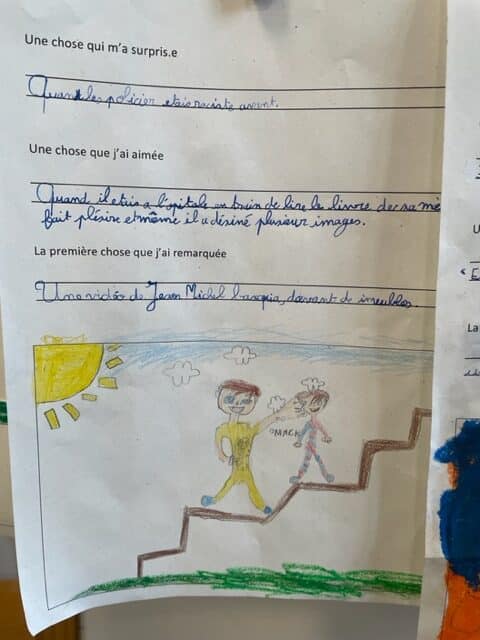 Une chose qui m'a surpris.e
Quand les policier etais raciste avent.
Une chose que j'ai aimée
Quand il etais a l'opitale en train de lire le livre de sa mè
fait plésire et même il a désiné plusieur images.
La première chose que j'ai remarquée
Une vidéo de Jean Michel basquia, davant de imeubles.
La